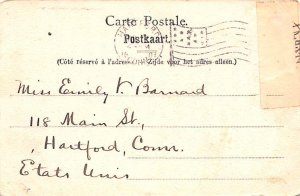 Carte Postale.
Postkaart.
(Côté réservé à l'adresse) Zijde voor het adres alleen.)
Miss Emily V. Barnard
118 Main St,
Hartford, Conn.
Etats Unis